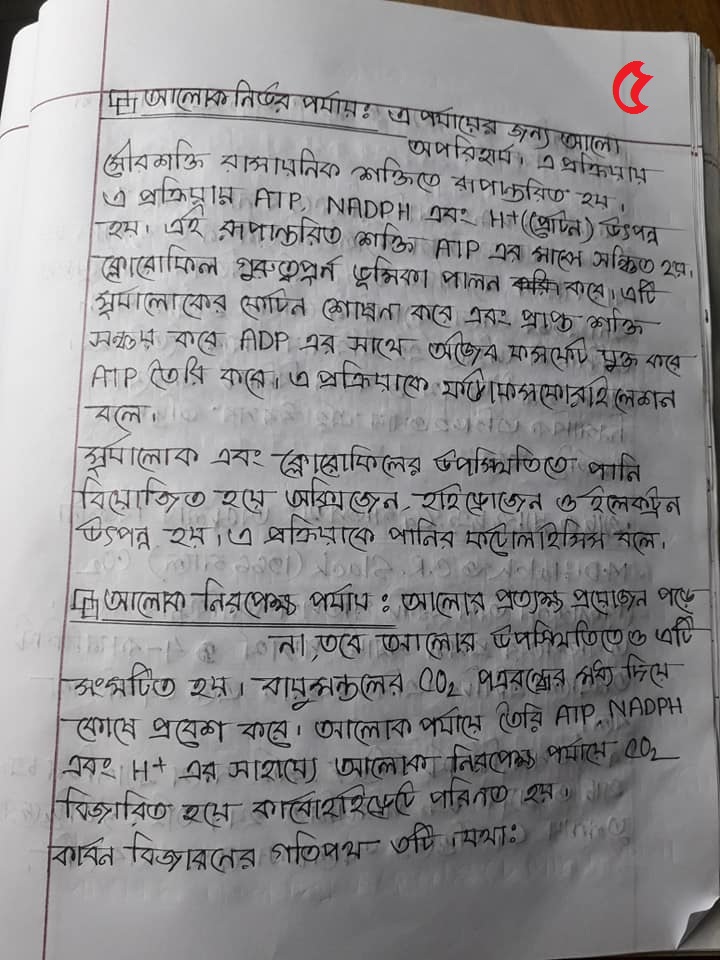 ৫
আলোক নির্ভর পর্যায়: এ পর্যায়ের জন্য আলো
অপরিহার্য। এ প্রক্রিয়ায়
সৌরশক্তি রাসায়নিক শক্তিতে রূপান্তরিত হয়।
এ প্রক্রিয়ায় ATP, NADPH এবং H+ (প্রোটন) উৎপন্ন
হয়। এই রূপান্তরিত শক্তি ATP এর মাঝে সঞ্চিত হয়।
ক্লোরোফিল গুরুত্বপূর্ন ভূমিকা পালন করে। এটি
সূর্যালোকের ফোটন শোষন করে এবং প্রাপ্ত শক্তি
সঞ্চয় করে ADP এর সাথে অজৈব ফসফেট যুক্ত করে
ATP তৈরি করে। এ প্রক্রিয়াকে ফটোফসফোরাইলেশন
বলে।
সূর্যালোক এবং ক্লোরোফিলের উপস্থিতিতে পানি
বিয়োজিত হয়ে অক্সিজেন, হাইড্রোজেন ও ইলেকট্রন
উৎপন্ন হয়। এ প্রক্রিয়াকে পানির ফটোলাইসিস বলে।
আলোক নিরপেক্ষ পর্যায়: আলোর প্রত্যক্ষ প্রয়োজন পড়ে
না, তবে আলোর উপস্থিতিতেও এটি
সংঘটিত হয়। বায়ুমন্ডলের CO2 পত্ররন্ধ্রের মধ্য দিয়ে
কোষে প্রবেশ করে। আলোক পর্যায়ে তৈরি ATP, NADPH
এবং H+ এর সাহায্যে আলোক নিরপেক্ষ পর্যায়ে CO2
বিজারিত হয়ে কার্বোহাইড্রেটে পরিনত হয়।
কার্বন বিজারনের গতিপথ ৩টি। যথা: